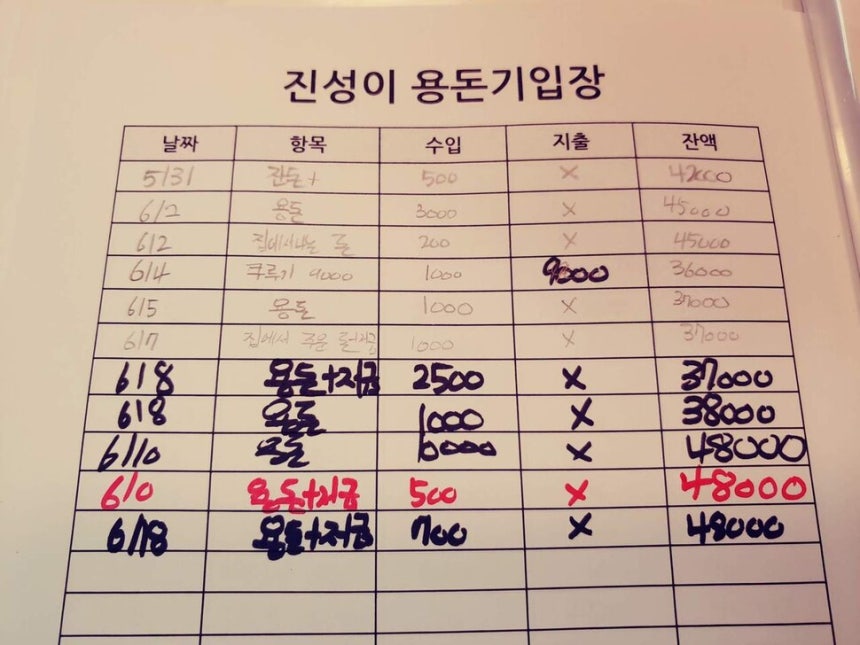 진성이 용돈기입장
날짜 항목 수입 지출 잔액
5/31 잔돈+ 500 X 42000
6/2 용돈 3000 X 45000
6/2 집에서나는 돈 200 X 45000
6/4 9000 1000 9000 36000
6/5 용돈 1000 X 37000
6/7 집에서 주운 돈 1000 X 37000
6/8 용돈+저금 2500 X 37000
6/8 용돈 1000 X 38000
6/10 용돈 10000 X 48000
6/10 용돈+저금 500 X 48000
6/18 용돈+저금 700 X 48000